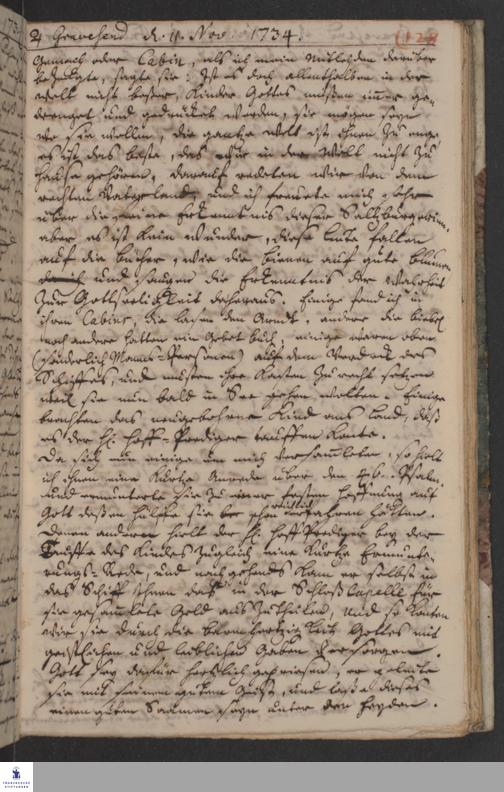 ♃ Gravesend d. 11. Nov. 1734. 128
Gemach oder Cabin, als ich mein Mitleiden darüber
bezeugte, sagte sie: Ist es doch allenthalben in der
Welt nicht besser, Kinder Gottes müssen immer ge-
drenget und gedrücket werden, sie mögen seyn
wo sie wollen, die gantze Welt ist ihnen zu enge
es ist das beste, das wir in der Welt nicht zu
Hause gehören, darauf redeten wir von dem
rechten Vaterlande, und ich freuete mich sehr
über die feine Erkenntnis dieser Saltzburgerin,
aber es ist kein wunder, diese leute fallen
auf die bücher, wie die bienen auf gute blumen
und saugen die Erkenntnis der Wahrheit
zur Gottseeligkeit daheraus. Einige fand ich in
ihren Cabins, die lasen den Arndt, andere die bibel
noch andere hatten ein Gebet buch, einige waren oben
(sonderlich Manns-Personen) auf dem Verdeck des
Schiffes, und musten ihre Kasten zu recht setzen
weil sie nun bald in See gehen wolten. Einige
brachten das neugebohrne Kind ans Land, daß
es der H. Hoff-Prediger tauffen konte.
Da sich nun einige um mich versammleten, so hielt
ich ihnen eine kurtze Anrede über den 46. Psalm,
und ermunterte sie zu einer festen Hoffnung auf
Gott dessen Hülffe sie schon erfahren hätten.
Denen anderen hielt der H. Hoff Prediger bey der
Tauffe des Kindes zugleich eine kurtze Ermunte-
rungs-Rede, und nachgehends kam er selbst in
das Schiff ihnen das in der Schloß Capelle für
sie gesammlete Geld auszutheilen, und so konten
wir sie durch die barmhertzigkeit Gottes mit
geistlichen und leiblichen Gaben versorgen.
Gott sey dafür hertzlich gepriesen, er
sie mit seinem guten Geist, und lasse dieses
einen guten Saamen seyn unter den Heyden.
FRANCKESCHE
STIFTUNGEN